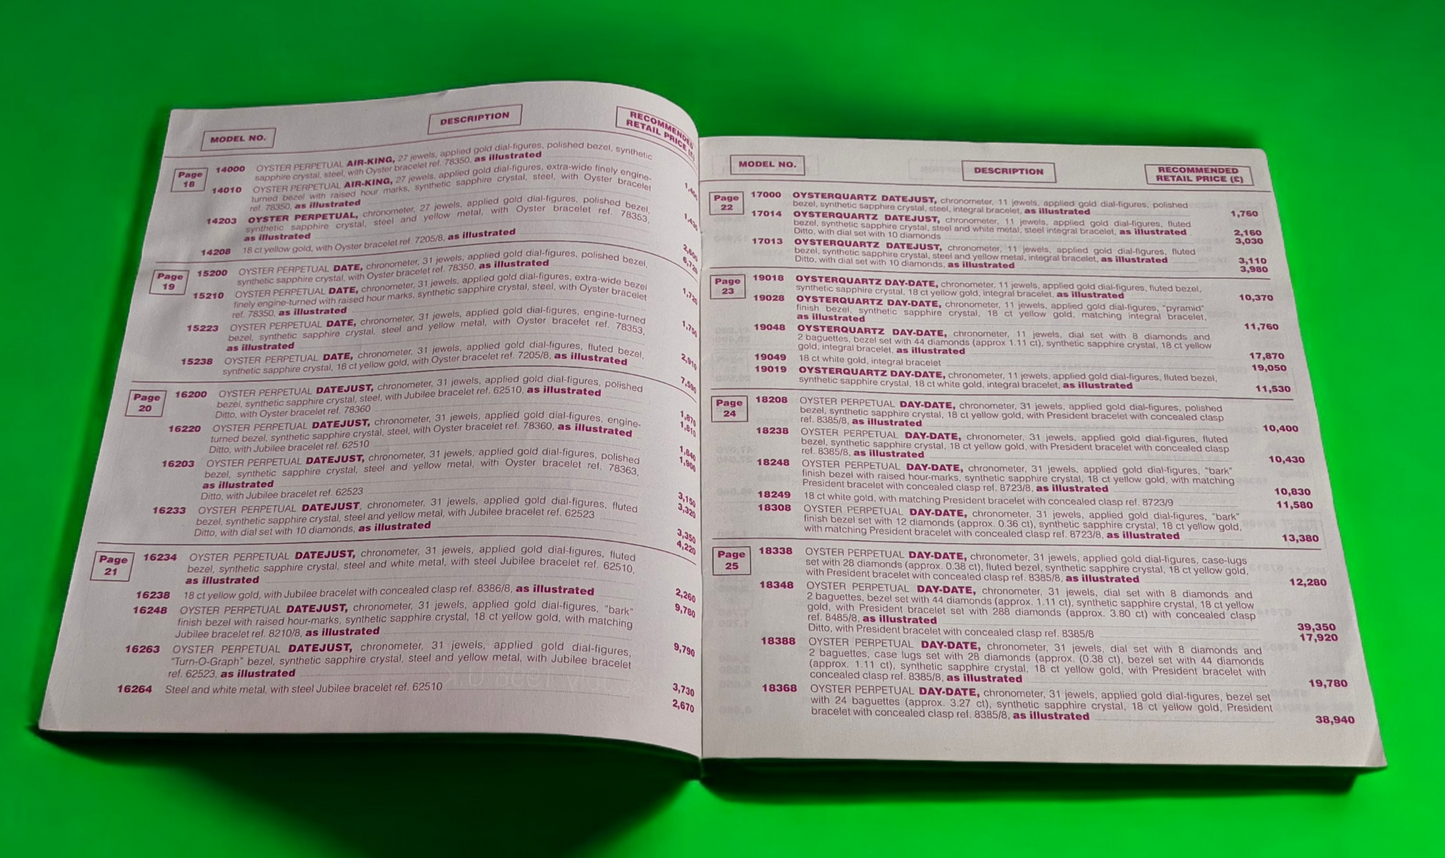 MODEL NO.
DESCRIPTION
RECOMMENDED
RETAIL PRICE (£)
Page
18
14000 OYSTER PERPETUAL AIR-KING, 27 jewels, applied gold dial-figures, polished bezel, synthetic
sapphire crystal, steel, with Oyster bracelet ref. 78350, as illustrated
14010 OYSTER PERPETUAL AIR-KING, 27 jewels, applied gold dial-figures, extra-wide finely engine-
turned bezel with raised hour marks, synthetic sapphire crystal, steel, with Oyster bracelet
ref. 78350, as illustrated
14203 OYSTER PERPETUAL, chronometer, 27 jewels, applied gold dial-figures, polished bezel,
synthetic sapphire crystal, steel and yellow metal, with Oyster bracelet ref. 78353,
as illustrated
14208 18 ct yellow gold, with Oyster bracelet ref. 7205/8, as illustrated
Page
19
15200 OYSTER PERPETUAL DATE, chronometer, 31 jewels, applied gold dial-figures, polished bezel,
synthetic sapphire crystal, with Oyster bracelet ref. 78350, as illustrated
15210 OYSTER PERPETUAL DATE, chronometer, 31 jewels, applied gold dial-figures, extra-wide bezel
finely engine-turned with raised hour marks, synthetic sapphire crystal, steel, with Oyster bracelet
ref. 78350, as illustrated
15223 OYSTER PERPETUAL DATE, chronometer, 31 jewels, applied gold dial-figures, engine-turned
bezel, synthetic sapphire crystal, steel and yellow metal, with Oyster bracelet ref. 78353,
as illustrated
15238 OYSTER PERPETUAL DATE, chronometer, 31 jewels, applied gold dial-figures, fluted bezel,
synthetic sapphire crystal, 18 ct yellow gold, with Oyster bracelet ref. 7205/8, as illustrated
Page
20
16200 OYSTER PERPETUAL DATEJUST, chronometer, 31 jewels, applied gold dial-figures, polished
bezel, synthetic sapphire crystal, steel, with Jubilee bracelet ref. 62510, as illustrated
Ditto, with Oyster bracelet ref. 78360
16220 OYSTER PERPETUAL DATEJUST, chronometer, 31 jewels, applied gold dial-figures, engine-
turned bezel, synthetic sapphire crystal, steel, with Oyster bracelet ref. 78360, as illustrated
Ditto, with Jubilee bracelet ref. 62510
16203 OYSTER PERPETUAL DATEJUST, chronometer, 31 jewels, applied gold dial-figures, polished
bezel, synthetic sapphire crystal, steel and yellow metal, with Oyster bracelet ref. 78363,
as illustrated 3,150
Ditto, with Jubilee bracelet ref. 62523 3,320
16233 OYSTER PERPETUAL DATEJUST, chronometer, 31 jewels, applied gold dial-figures, fluted
bezel, synthetic sapphire crystal, steel and yellow metal, with Jubilee bracelet ref. 62523 3,350
Ditto, with dial set with 10 diamonds, as illustrated 4,220
Page
21
16234 OYSTER PERPETUAL DATEJUST, chronometer, 31 jewels, applied gold dial-figures, fluted
bezel, synthetic sapphire crystal, steel and white metal, with steel Jubilee bracelet ref. 62510,
as illustrated 2,260
16238 18 ct yellow gold, with Jubilee bracelet with concealed clasp ref. 8386/8, as illustrated 9,780
16248 OYSTER PERPETUAL DATEJUST, chronometer, 31 jewels, applied gold dial-figures, "bark"
finish bezel with raised hour-marks, synthetic sapphire crystal, 18 ct yellow gold, with matching
Jubilee bracelet ref. 8210/8, as illustrated 9,790
16263 OYSTER PERPETUAL DATEJUST, chronometer, 31 jewels, applied gold dial-figures,
"Turn-O-Graph" bezel, synthetic sapphire crystal, steel and yellow metal, with Jubilee bracelet
ref. 62523, as illustrated 3,730
16264 Steel and white metal, with steel Jubilee bracelet ref. 62510 2,670
MODEL NO.
DESCRIPTION
RECOMMENDED
RETAIL PRICE (£)
Page
22
17000 OYSTERQUARTZ DATEJUST, chronometer, 11 jewels, applied gold dial-figures, polished
bezel, synthetic sapphire crystal, steel, integral bracelet, as illustrated 1,760
17014 OYSTERQUARTZ DATEJUST, chronometer, 11 jewels, applied gold dial-figures, fluted
bezel, synthetic sapphire crystal, steel and white metal, steel integral bracelet, as illustrated 2,160
Ditto with dial set with 10 diamonds 3,030
17013 OYSTERQUARTZ DATEJUST, chronometer, 11 jewels, applied gold dial-figures, fluted
bezel, synthetic sapphire crystal, steel and yellow metal, integral bracelet, as illustrated 3,110
Ditto, with dial set with 10 diamonds, as illustrated 3,980
Page
23
19018 OYSTERQUARTZ DAY-DATE, chronometer, 11 jewels, applied gold dial-figures, fluted bezel,
synthetic sapphire crystal, 18 ct yellow gold, integral bracelet, as illustrated 10,370
19028 OYSTERQUARTZ DAY-DATE, chronometer, 11 jewels, applied gold dial-figures, "pyramid"
finish bezel, synthetic sapphire crystal, 18 ct yellow gold, matching integral bracelet,
as illustrated 11,760
19048 OYSTERQUARTZ DAY-DATE, chronometer, 11 jewels, dial set with 8 diamonds and
2 baguettes, bezel set with 44 diamonds (approx 1.11 ct), synthetic sapphire crystal, 18 ct yellow
gold, integral bracelet, as illustrated 17,870
19049 18 ct white gold, integral bracelet 19,050
19019 OYSTERQUARTZ DAY-DATE, chronometer, 11 jewels, applied gold dial-figures, fluted bezel,
synthetic sapphire crystal, 18 ct white gold, integral bracelet, as illustrated 11,530
Page
24
18208 OYSTER PERPETUAL DAY-DATE, chronometer, 31 jewels, applied gold dial-figures, polished
bezel, synthetic sapphire crystal, 18 ct yellow gold, with President bracelet with concealed clasp
ref. 8385/8, as illustrated 10,400
18238 OYSTER PERPETUAL DAY-DATE, chronometer, 31 jewels, applied gold dial-figures, fluted
bezel, synthetic sapphire crystal, 18 ct yellow gold, with President bracelet with concealed clasp
ref. 8385/8, as illustrated 10,430
18248 OYSTER PERPETUAL DAY-DATE, chronometer, 31 jewels, applied gold dial-figures, "bark"
finish bezel with raised hour-marks, synthetic sapphire crystal, 18 ct yellow gold, with matching
President bracelet with concealed clasp ref. 8723/8, as illustrated 10,830
18249 18 ct white gold, with matching President bracelet with concealed clasp ref. 8723/9 11,580
18308 OYSTER PERPETUAL DAY-DATE, chronometer, 31 jewels, applied gold dial-figures, "bark"
finish bezel set with 12 diamonds (approx. 0.36 ct), synthetic sapphire crystal, 18 ct yellow gold,
with matching President bracelet with concealed clasp ref. 8723/8, as illustrated 13,380
Page
25
18338 OYSTER PERPETUAL DAY-DATE, chronometer, 31 jewels, applied gold dial-figures, case-lugs
set with 28 diamonds (approx. 0.38 ct), fluted bezel, synthetic sapphire crystal, 18 ct yellow gold,
with President bracelet with concealed clasp ref. 8385/8, as illustrated 12,280
18348 OYSTER PERPETUAL DAY-DATE, chronometer, 31 jewels, dial set with 8 diamonds and
2 baguettes, bezel set with 44 diamonds (approx. 1.11 ct), synthetic sapphire crystal, 18 ct yellow
gold, with President bracelet set with 288 diamonds (approx. 3.80 ct) with concealed clasp
ref. 8485/8, as illustrated 39,350
Ditto, with President bracelet with concealed clasp ref. 8385/8 17,920
18388 OYSTER PERPETUAL DAY-DATE, chronometer, 31 jewels, dial set with 8 diamonds and
2 baguettes, case lugs set with 28 diamonds (approx. (0.38 ct), bezel set with 44 diamonds
(approx. 1.11 ct), synthetic sapphire crystal, 18 ct yellow gold, with President bracelet with
concealed clasp ref. 8385/8, as illustrated 19,780
18368 OYSTER PERPETUAL DAY-DATE, chronometer, 31 jewels, applied gold dial-figures, bezel set
with 24 baguettes (approx. 3.27 ct), synthetic sapphire crystal, 18 ct yellow gold, President
bracelet with concealed clasp ref. 8385/8, as illustrated 38,940